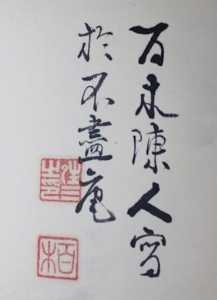 百未陳人寫
於不盡庵
栢